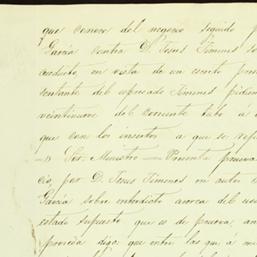 que conoce del negocio seguido p
García contra D. Jesus Jimenes so
conducto en vista de un escrito pres
sentante del espresado Jimenes pidien
veintinueve del corriente tubo á
que con los insertos a que se refi
Sor. Ministro — Ponente preveia
cio, por D. Jesus Jimenes en autos
García sobre interdicto acerca del us
estado supuesto que es de prueva, an
proveida digo: que entre las que á m